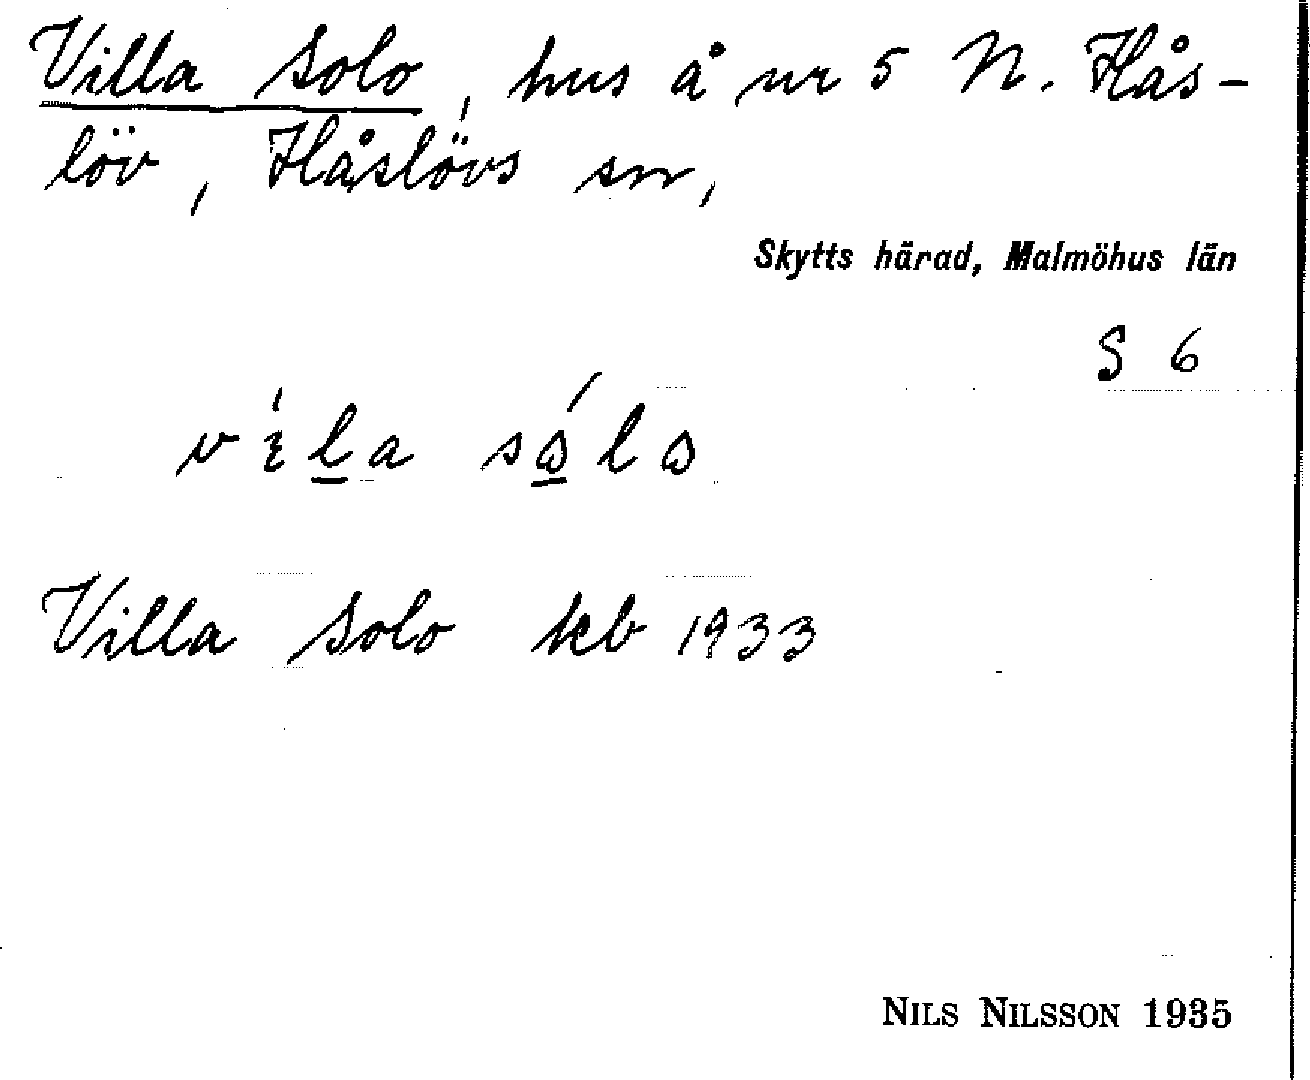 Villa Solo, hus å nr 5 N. Hås-
löv, Håslövs sn,
Skytts härad, Malmöhus län
S 6
Villa Solo kb 1933
NILS NILSSON 1935